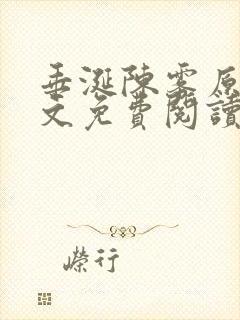 垂涎陳雾原
文免費閱讀
嶸行